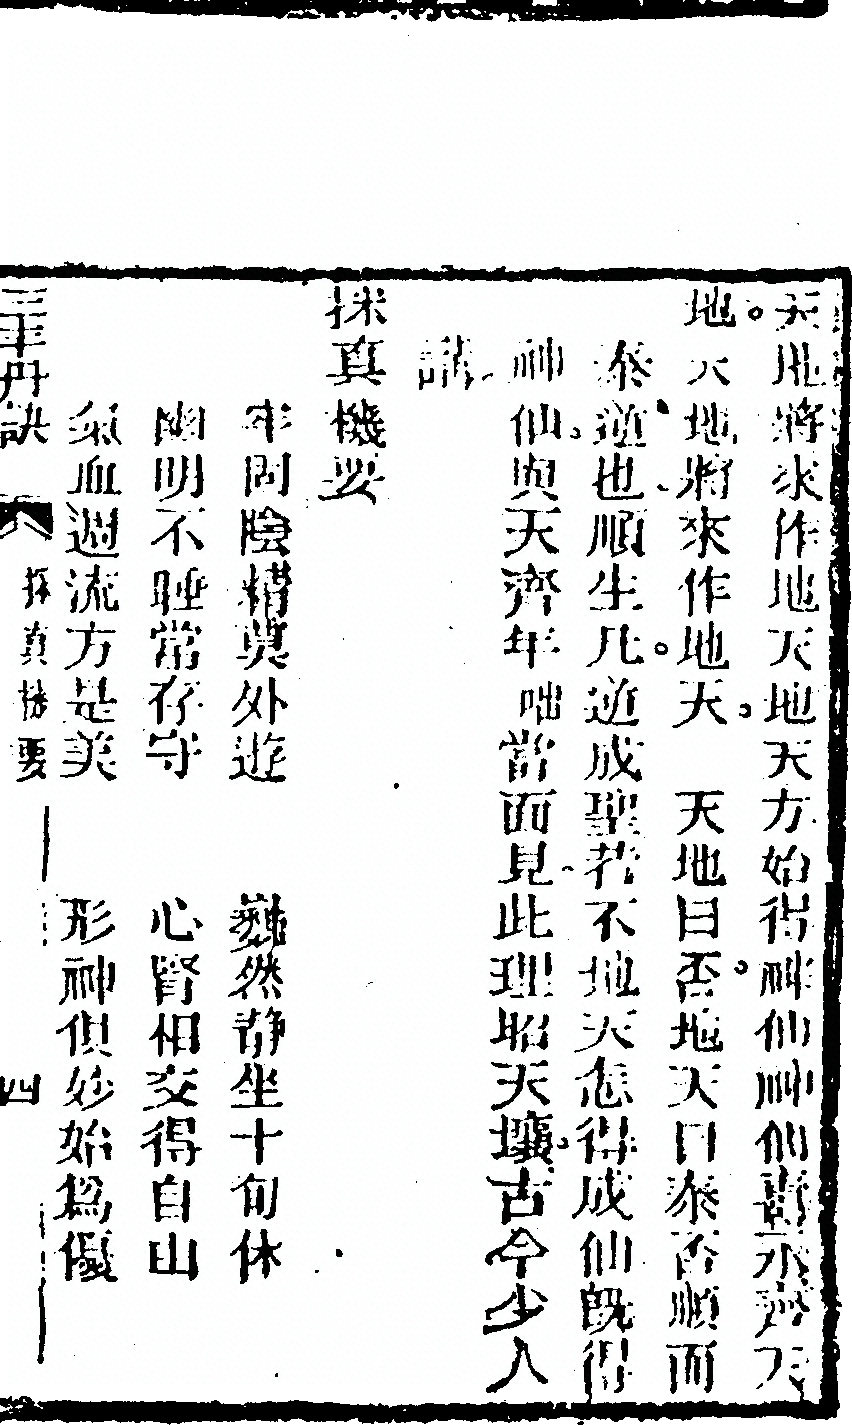 天地將來作地天地天方始得神仙神仙壽永齊天
地天地將來作地天　天地曰否地天曰泰否順而
泰逆也順生凡逆成聖若不地天怎得成仙旣得
神仙與天齊年咄當面見此理昭天壤古今少人
講
採真機要
牢閉陰精莫外遊　巍然靜坐十旬休
幽明不睡常存守　心腎相交得自由
氣血週流方是美　形神俱妙始爲優
三丰丹訣　採真機要　四